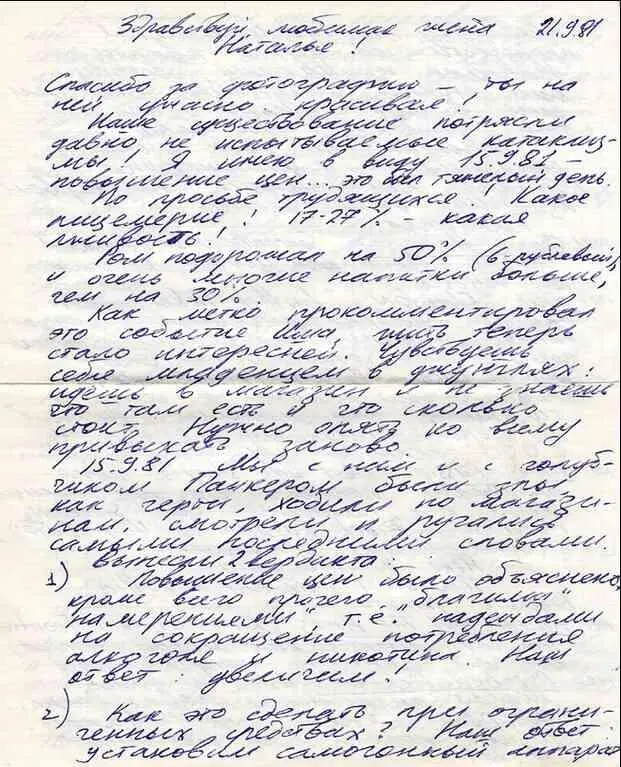 Здравствуй, любимая чета 21.9.81
Наталья!
Спасибо за фотографию – ты на
ней ужасно красивая!
Наше существование потрясли
давно не испытываемые катаклиз-
мы! Я имею в виду 15.9.81 –
повышение цен... это был тяжелый день.
По просьбе трудящихся! Какое
лицемерие! 17-27% – какая
лживость!
Ром подорожал на 50% (6-рублевый),
и очень многие напитки больше,
чем на 30%.
Как метко прокомментировал
это событие жить теперь
стало интересней. Чувствуешь
себя младенцем в джунглях:
идешь в магазин и не знаешь
что там есть и что сколько
стоит. Нужно опять ко всему
привыкать заново.
15.9.81 Мы с и с голуб-
чиком были злы
как черти, ходили по магази-
нам, смотрели и ругались
самыми последними словами.
Вынесли 2 вердикта:
1) Повышение цен было объяснено,
кроме всего прочего „благими
намерениями", т.е. надеждами
на сокращение потребления
алкоголя и никотина. Наш
ответ: увеличим!
2) Как это сделать при ограни-
ченных средствах? Наш ответ:
установим самогонный аппарат